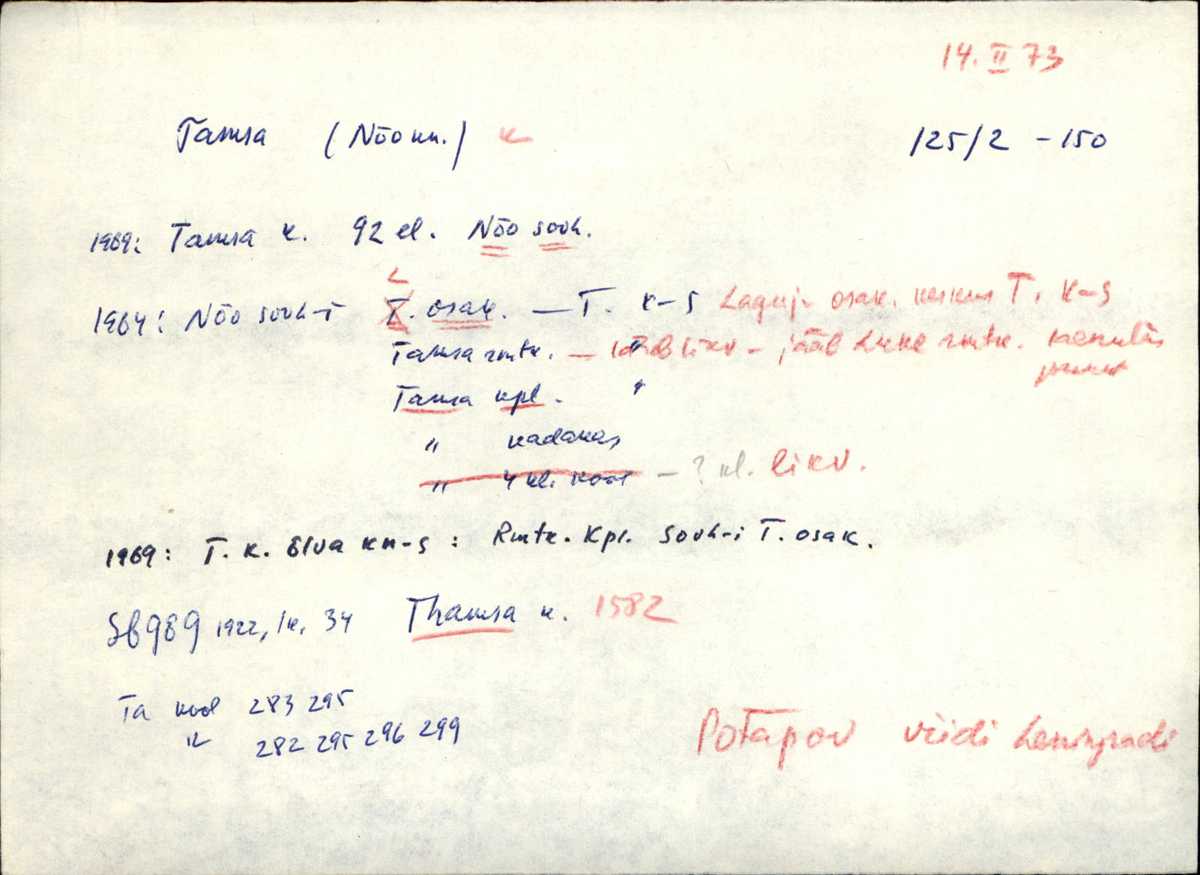 14. II 73
Tamsa (Nõo kn.) k 125/2 - 150
1969: Tamsa k. 92 el. Nõo sovh.
L
1964: Nõo sovh-i I. osak. — T. k-s Laguj. osak. keskus T. k-s
Tamsa rmtk. — likv - jääb Luke rmtk.
Tamsa kpl. "
" kadakas
" 4 kl. kool — ? kl. likv.
1969: T. k. Elva kn-s: Rmtk. Kpl. Sovh-i T. osak.
1922, lk. 34 Thamsa k. 1582
Ta kool 283 295
" 282 295 296 299
Potapov viidi Leningradi